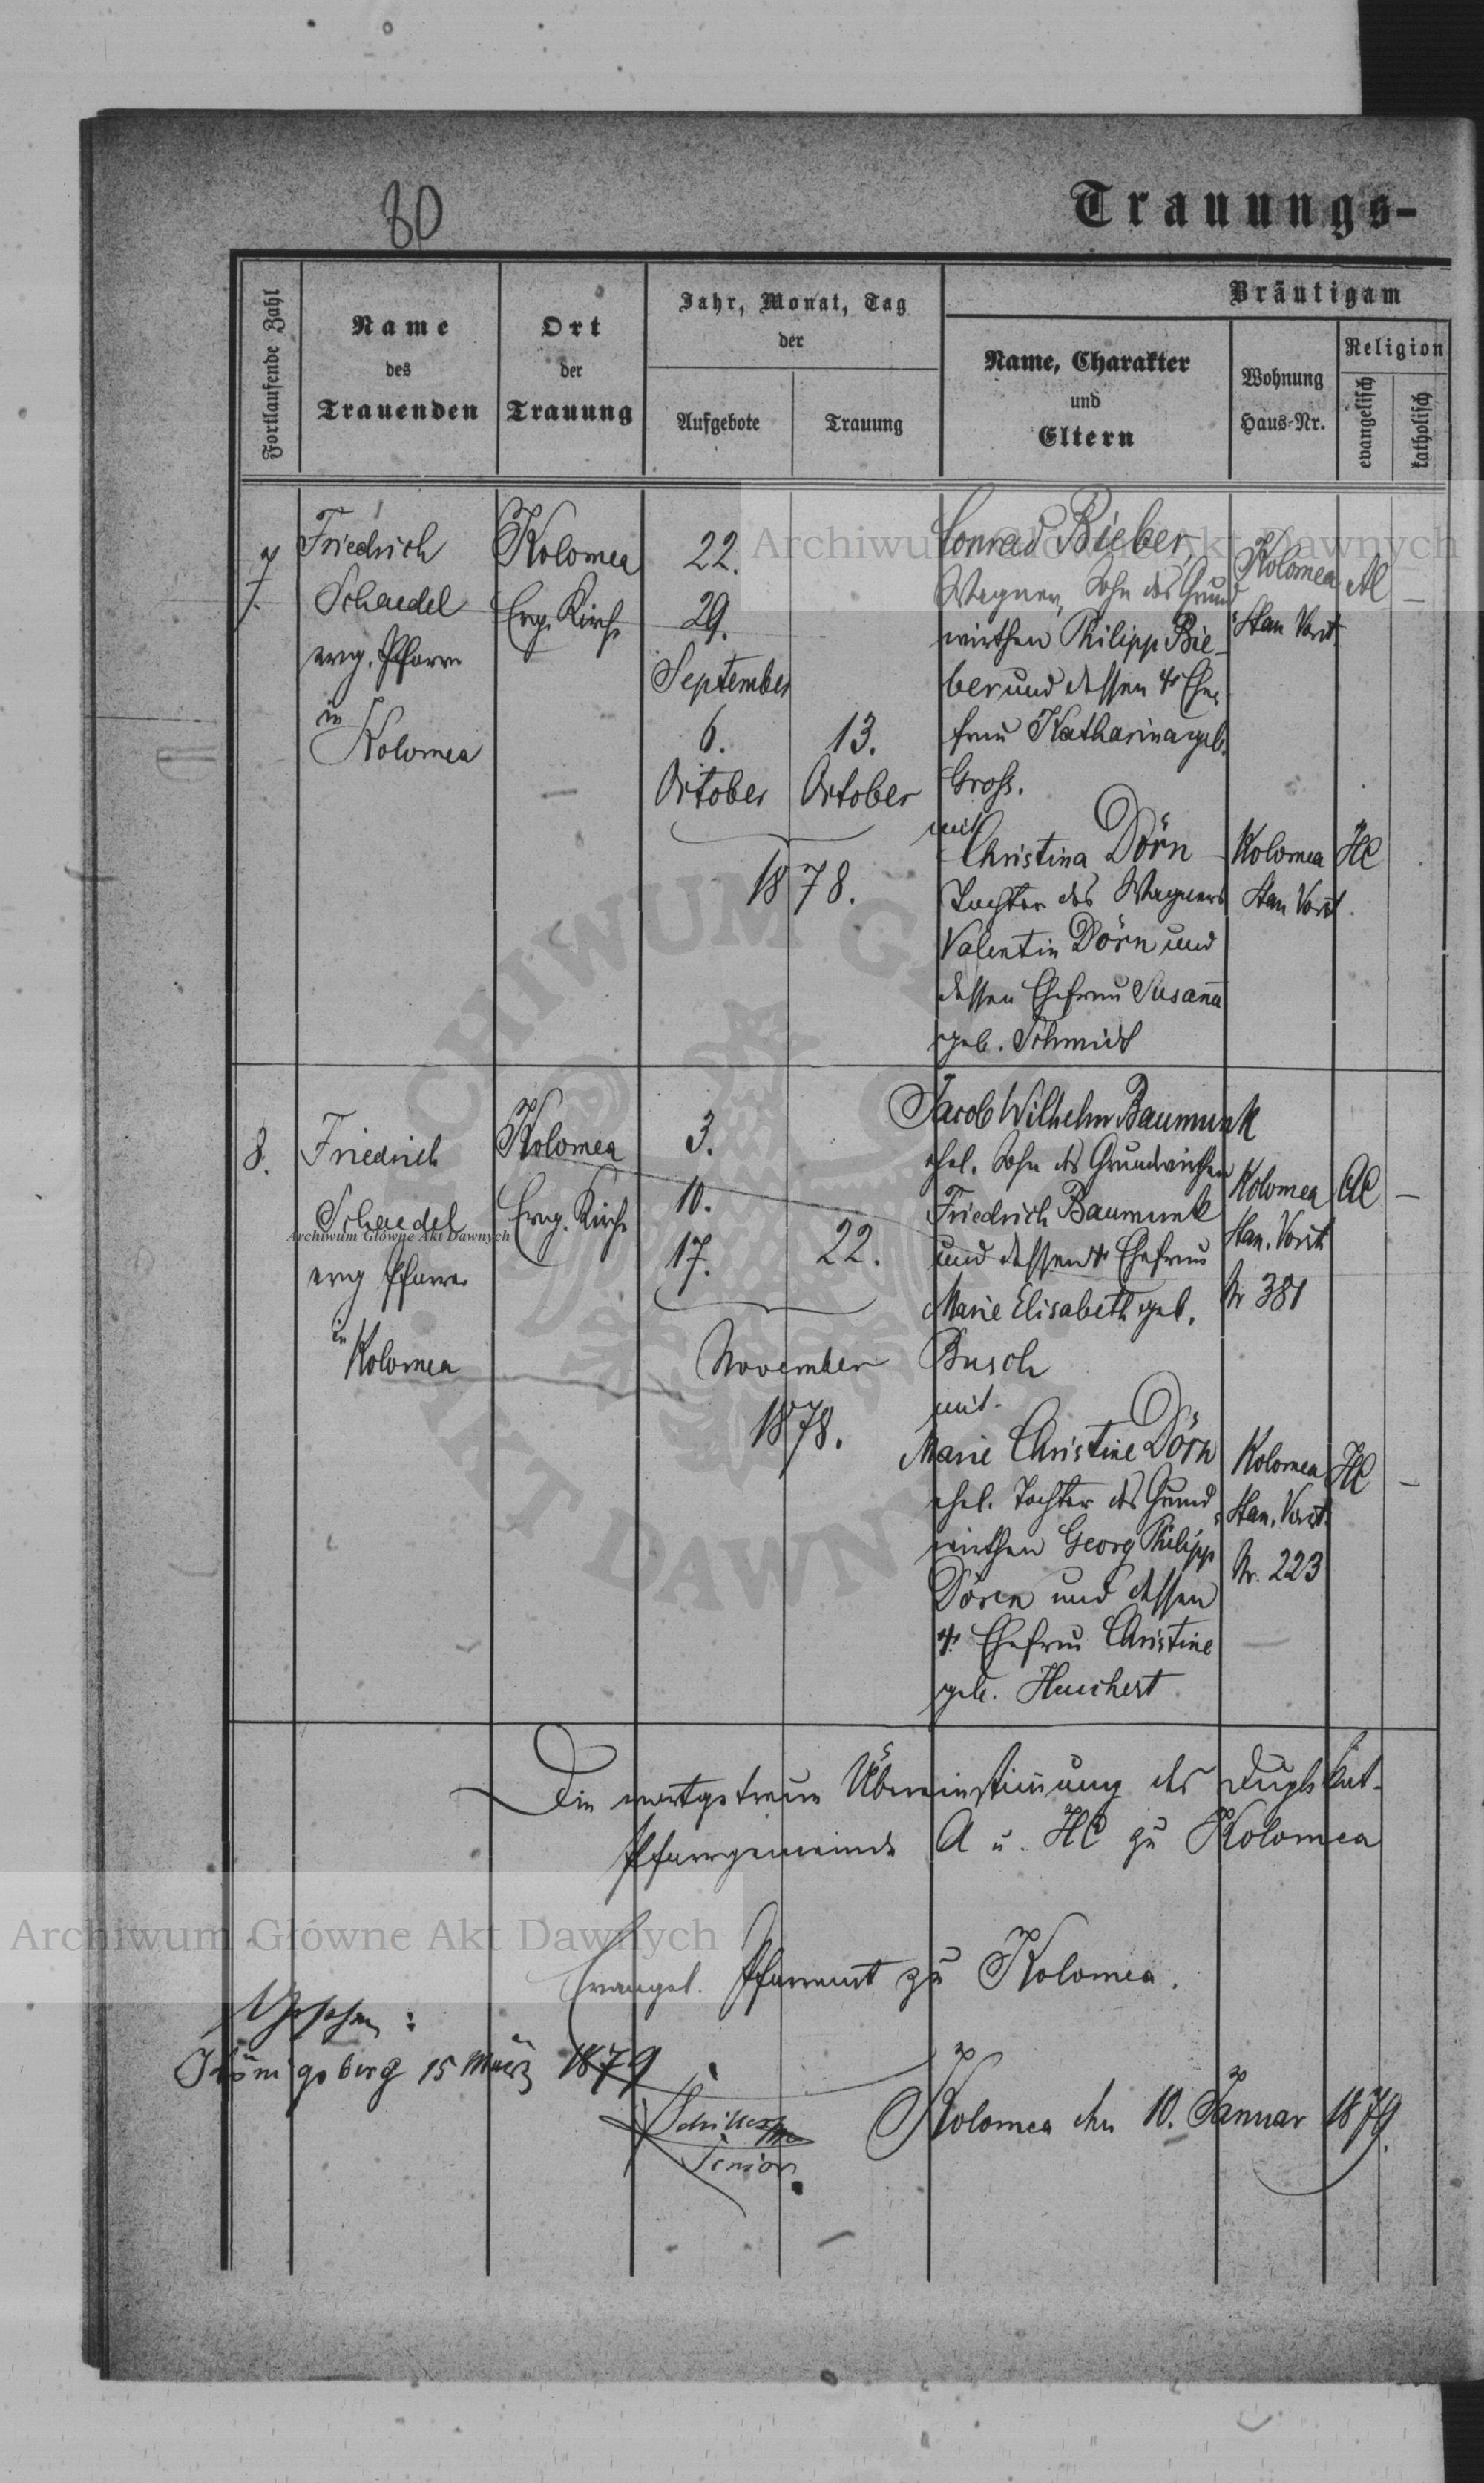 80
Trauungs-
Fortlaufende Zahl
Name
des
Trauenden
Ort
der
Trauung
Jahr, Monat, Tag
der
Aufgebote
Trauung
Bräutigam
Name, Charakter
und
Eltern
Wohnung
Haus-Nr.
Religion
evangelisch
katholisch
7.
Friedrich
Schaedel
evg. Pfarrer
in
Kolomea
Kolomea
Evg. Kirche
22.
29.
September
6.
October
13.
October
1878.
Conrad Bieber,
Wagner, Sohn des Grund
wirthen Philipp Bie-
ber und dessen † Ehe-
frau Katharina geb.
Groß.
mit
Christina Dörn
Tochter des Wagners
Valentin Dörn und
dessen Ehefrau Susanna
geb. Schmidt
Kolomea
Stan. Vorst.
AC
—
Kolomea
Stan Vorst.
HC
8.
Friedrich
Schaedel
evg Pfarrer
in
Kolomea
Kolomea
Evg. Kirche
3.
10.
17.
22.
November
1878.
Jacob Wilhelm Baumunk
ehel. Sohn des Grundwirthen
Friedrich Baumunk
und dessen † Ehefrau
Marie Elisabeth geb.
Busch
mit
Marie Christine Dörn
ehel. Tochter des Grund-
wirthen Georg Philipp
Dören und dessen
† Ehefrau Christine
geb. Huschert
Kolomea
Stan. Vorst.
Nr 381
AC
—
Kolomea
Stan. Vorst.
Nr. 223
HC
—
Die wortgetreue Übereinstimmung des Duplikat-
Pfarrgemeinde A u. HC zu Kolomea
Evangel. Pfarramt zu Kolomea.
Gesehen:
Königsberg 15 März 1879
Senior
Kolomea den 10. Januar 1879.
Archiwum Główne Akt Dawnych
Archiwum Główne Akt Dawnych
Archiwum Główne Akt Dawnych